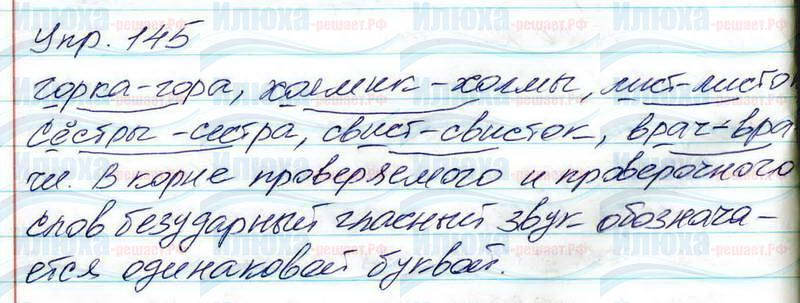 Упр. 145
горка-гора, холмик-холмы, лист-листок
сёстры-сестра, свист-свисток, врач-вра-
чи. В корне проверяемого и проверочного
слов безударный гласный звук обознача-
ется одинаковой буквой.